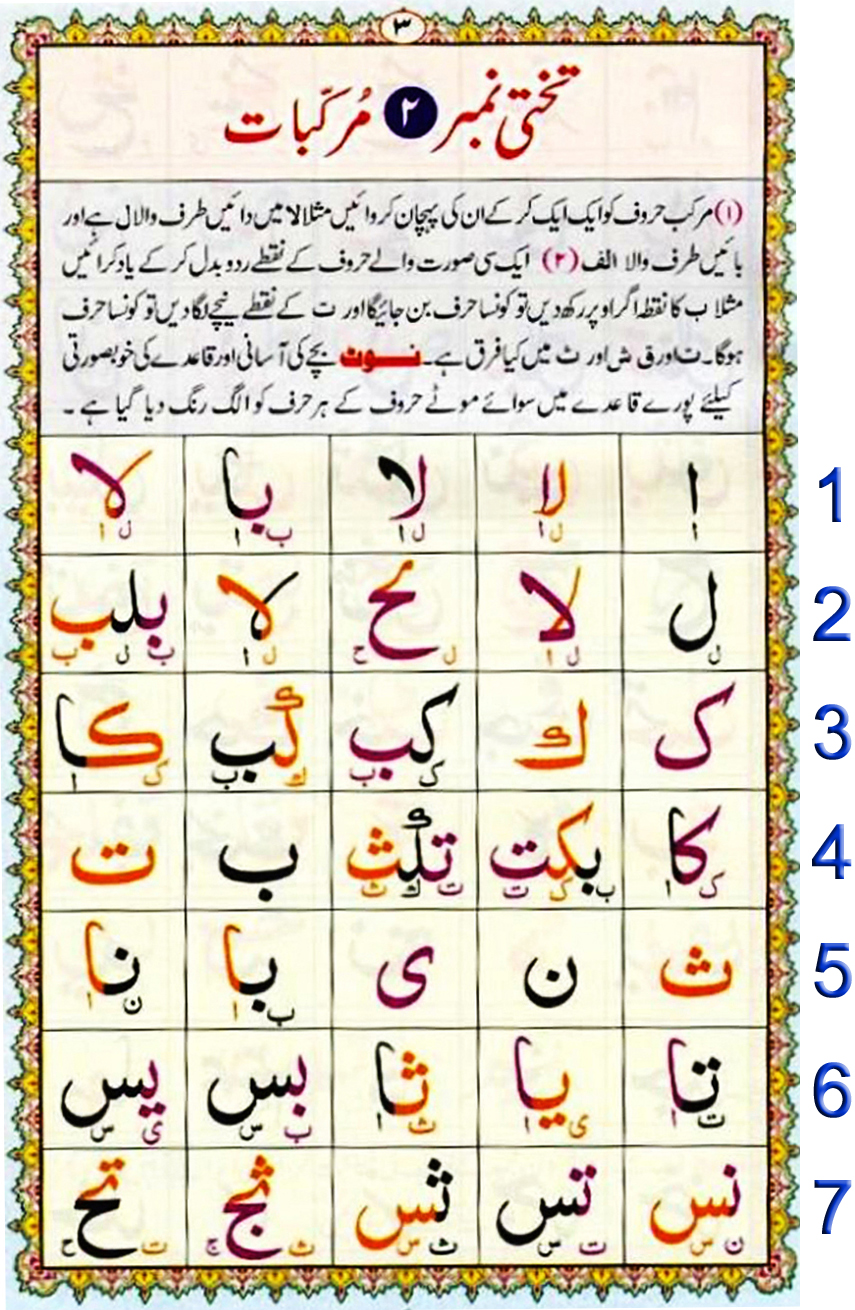 ٣
تختی نمبر ٢ مُرکّبات
(١) مرکب حروف کو ایک ایک کر کے ان کی پہچان کروائیں مثلا لا میں دائیں طرف والا ل ہے اور
بائیں طرف والا الف (٢) ایک سی صورت والے حروف کے نقطے ردو بدل کر کے یاد کرائیں
مثلا ب کا نقطہ اگر اوپر رکھ دیں تو کونسا حرف بن جائیگا اور ت کے نقطے نیچے لگا دیں تو کونسا حرف
ہوگا۔ ت اور ق ش اور ث میں کیا فرق ہے۔ نوٹ بچے کی آسانی اور قاعدے کی خوبصورتی
کیلئے پورے قاعدے میں سوائے موٹے حروف کے ہر حرف کو الگ رنگ دیا گیا ہے ۔
ا لا لا با لا 1
ا ل ا ل ا ب ا ل ا
ل لا لح لا بلب 2
ل ل ا ل ح ل ا ب ل ب
ک ك کب كب کا 3
ک ب ك ب ک ا
کا بکت تكث ب ت 4
ک ا ب ک ت ت ك ث
ث ن ی با نا 5
ب ا ن ا
تا یا ثا بس یس 6
ت ا ی ا ث ا ب س ی س
نس تس ثس ثج تح 7
ن س ت س ث س ث ج ت ح